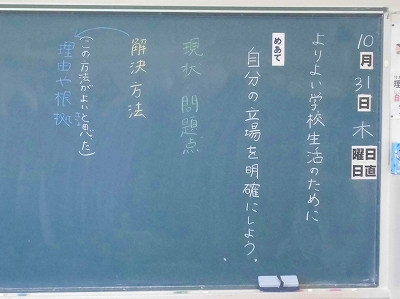 10月31日 木曜日
日直
よりよい学校生活のために
めあて
自分の立場を明確にしよう。
現状 問題点
解決方法
(この方法がよいと思った)
理由や根拠